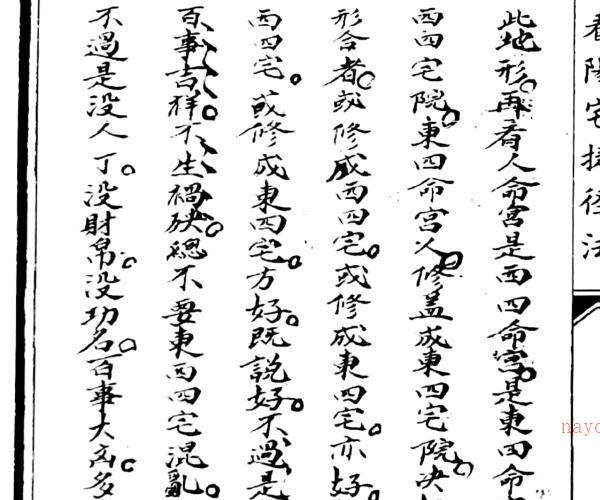 看陽宅捷徑法
此地形。再看人命宮是西四命宮。是東四命
西四宅院。東四命宮人修盖成東四宅院。决
形合者。或修成西四宅。或修成東四宅。亦好。
西四宅。或修成東四宅。方好。既說好。不過是
百事吉祥。不生禍殃。總不要東西四宅混亂。
不過是没人丁。没財帛。没功名。百事大
nayo